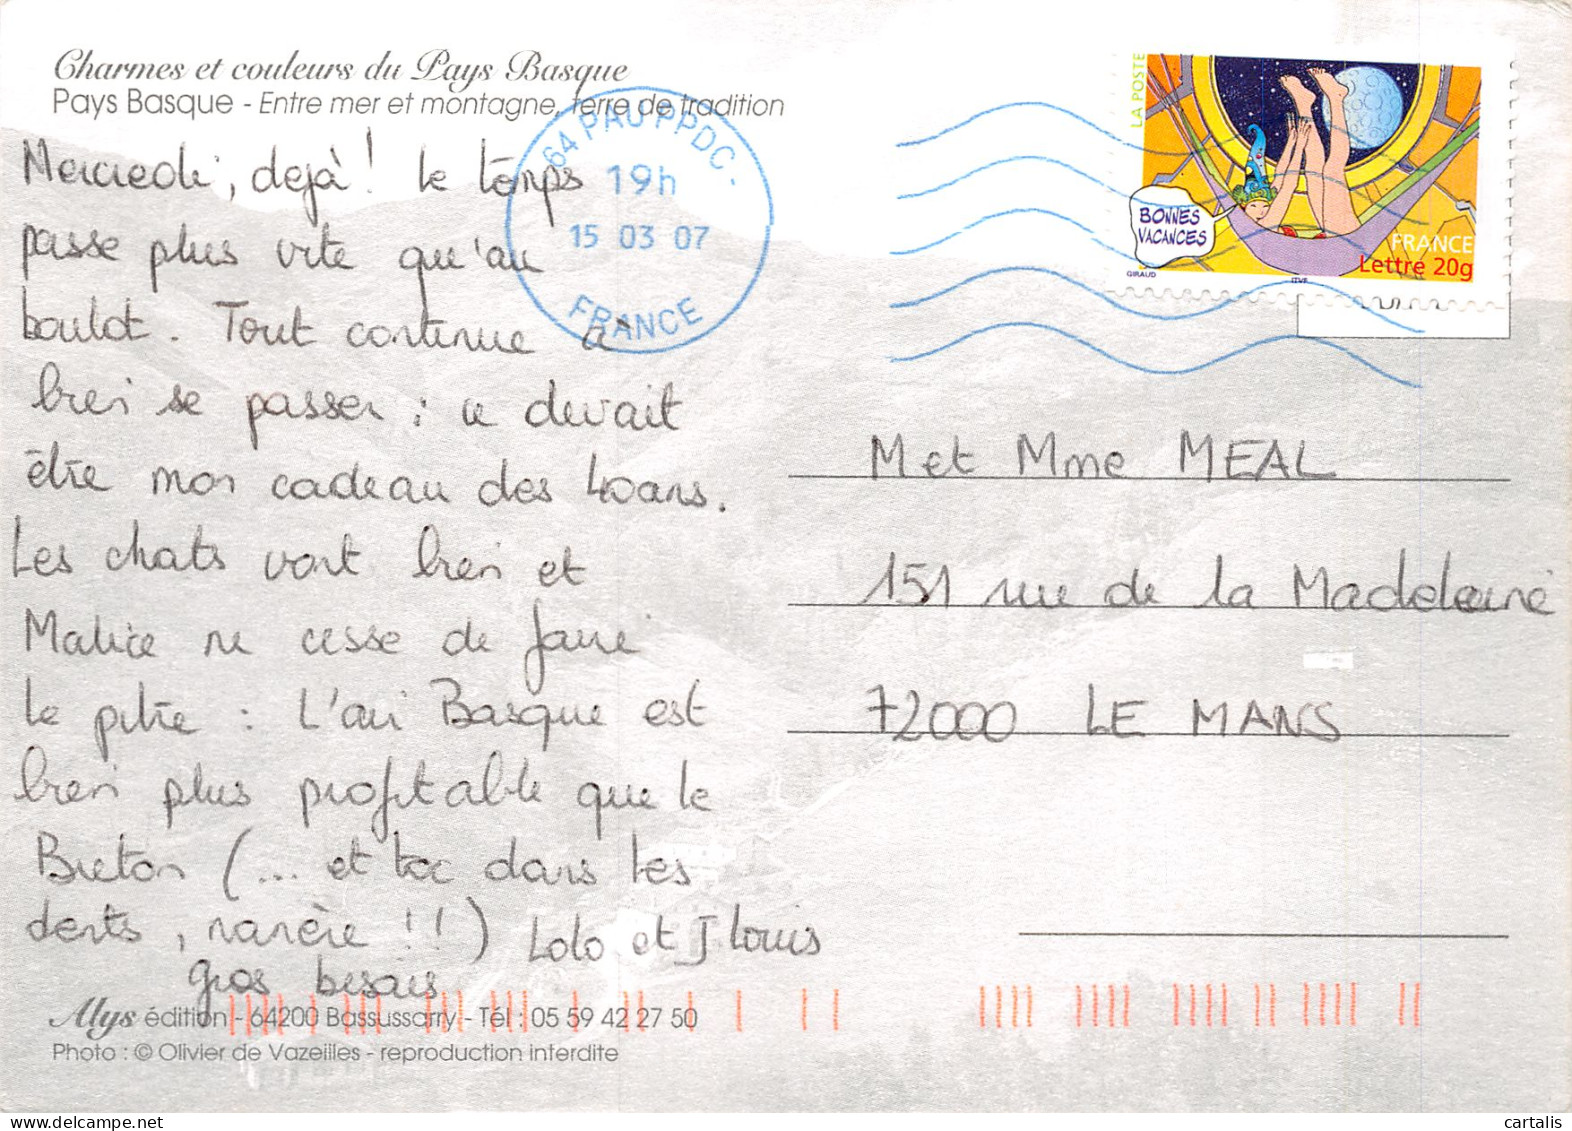 Charmes et couleurs du Pays Basque
Pays Basque - Entre mer et montagne, terre de tradition
Mercredi, dejà ! Le temps
passe plus vite qu'au
boulot. Tout continue à
bien se passer : ce devait
être mon cadeau des 40 ans.
Les chats vont bien et
Malice ne cesse de faire
le pitre : L'air Basque est
bien plus profitable que le
Breton (... et toc dans les
dents, nanère !!) Lolo et J Louis
gros bisous
Alys édition - 64200 Bassussarry - Tél : 05 59 42 27 50
Photo : © Olivier de Vazeilles - reproduction interdite
64 PAU PPDC -
19h
15 03 07
FRANCE
LA POSTE
BONNES
VACANCES
FRANCE
Lettre 20g
GIRAUD
ITVF
M et Mme MEAL
151 rue de la Madeleine
72000 LE MANS
cartalis.com